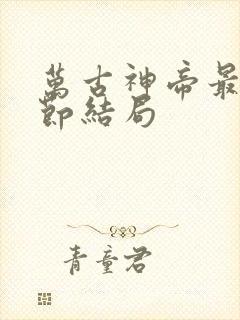 萬古神帝最
節結局
青童君